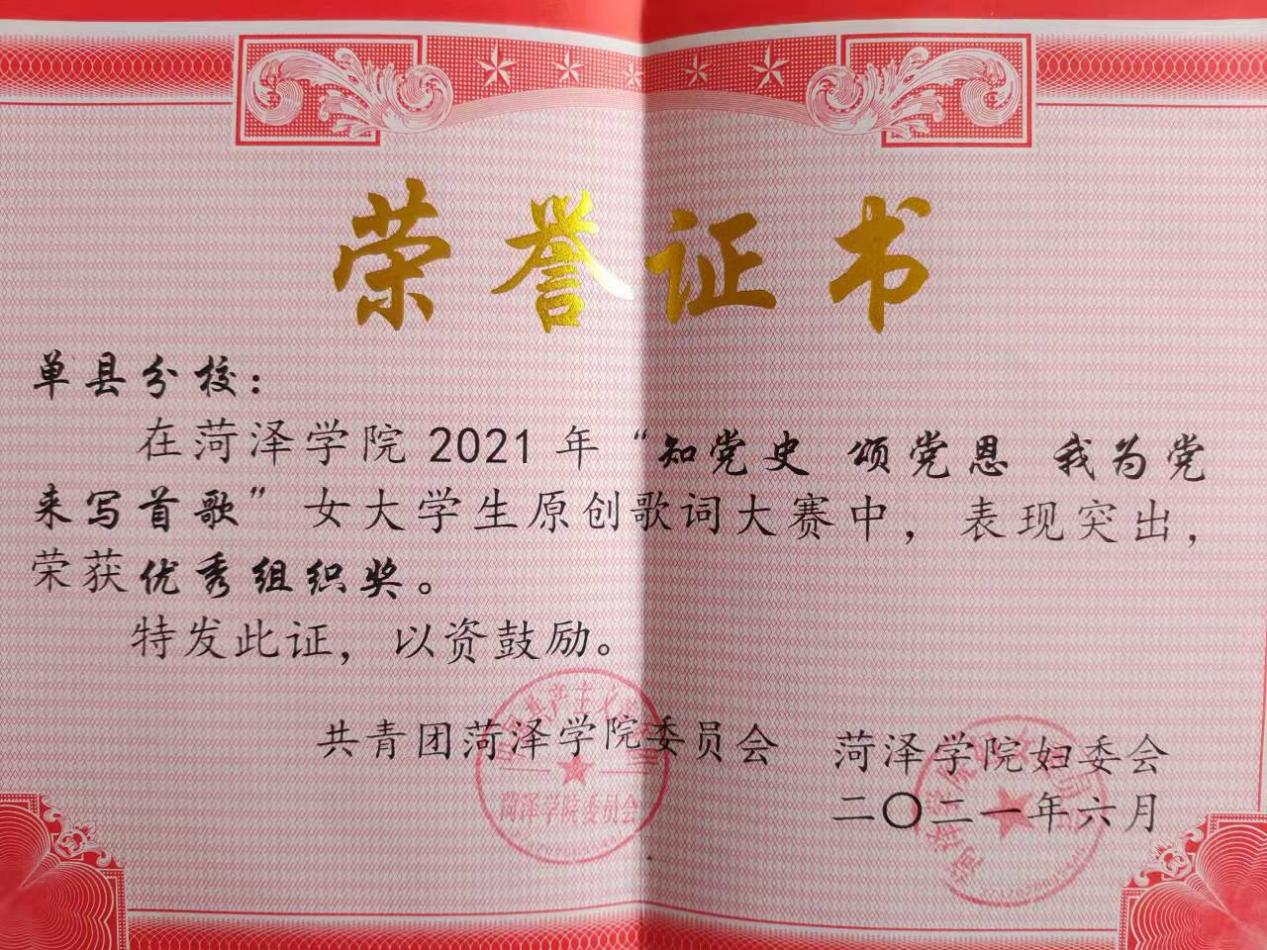 荣誉证书
单县分校：
在菏泽学院 2021 年“知党史 颂党恩 我为党
来写首歌”女大学生原创歌词大赛中，表现突出，
荣获优秀组织奖。
特发此证，以资鼓励。
共青团菏泽学院委员会 菏泽学院妇委会
二〇二一年六月
菏泽学院委员会